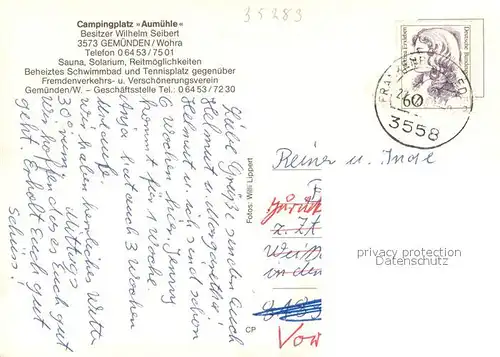 35283
Campingplatz »Aumühle«
Besitzer Wilhelm Seibert
3573 GEMÜNDEN/Wohra
Telefon 0 64 53/75 01
Sauna, Solarium, Reitmöglichkeiten
Beheiztes Schwimmbad und Tennisplatz gegenüber
Fremdenverkehrs- u. Verschönerungsverein
Gemünden/W. – Geschäftstelle Tel.: 0 64 53/72 30
Deutsche Bundes
60
3558
Liebe Grüße senden Euch
Helmut u. Margarethe!
Helmut u. ich sind schon
6 Wochen hier, Jenny
kommt für 1 Woche.
Anja hat auch 3 Wochen
Urlaub.
wir haben herrliches Wetter
Mittags
30° rum.
Wir hoffen das es Euch gut
geht. Erholt Euch gut
Schüss!
Fotos: Willi Lippert
CP
Reiner u. Inge
zurück
z. Zt.
in den
Vor
privacy protection
Datenschutz